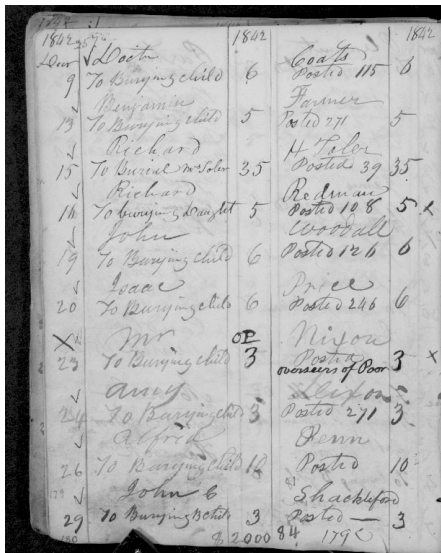 1842 1842 1842
Doctr Coats
9 To Burying child 6 Posted 115 6
Benjamin Farmer
13 To Burying child 5 Posted 271 5
Richard H Tyler
15 To Burial Mr Tyler 35 Posted 39 35
Richard Redman
16 To burying Daught 5 Posted 108 5 x
John Woodall
19 To Burying child 6 Posted 126 6
Isaac Price
20 To Burying child 6 Posted 246 6
X Mr OP Nixon
23 To Burying child 3 Posted 3 x
overseers of Poor
Amy Dixon
24 To Burying child 3 Posted 271 3
Alfred Penn
26 To Burying child 10 Posted 10
John C Shackleford
29 To Burying Bchild 3 Posted — 3
$ 2000 84